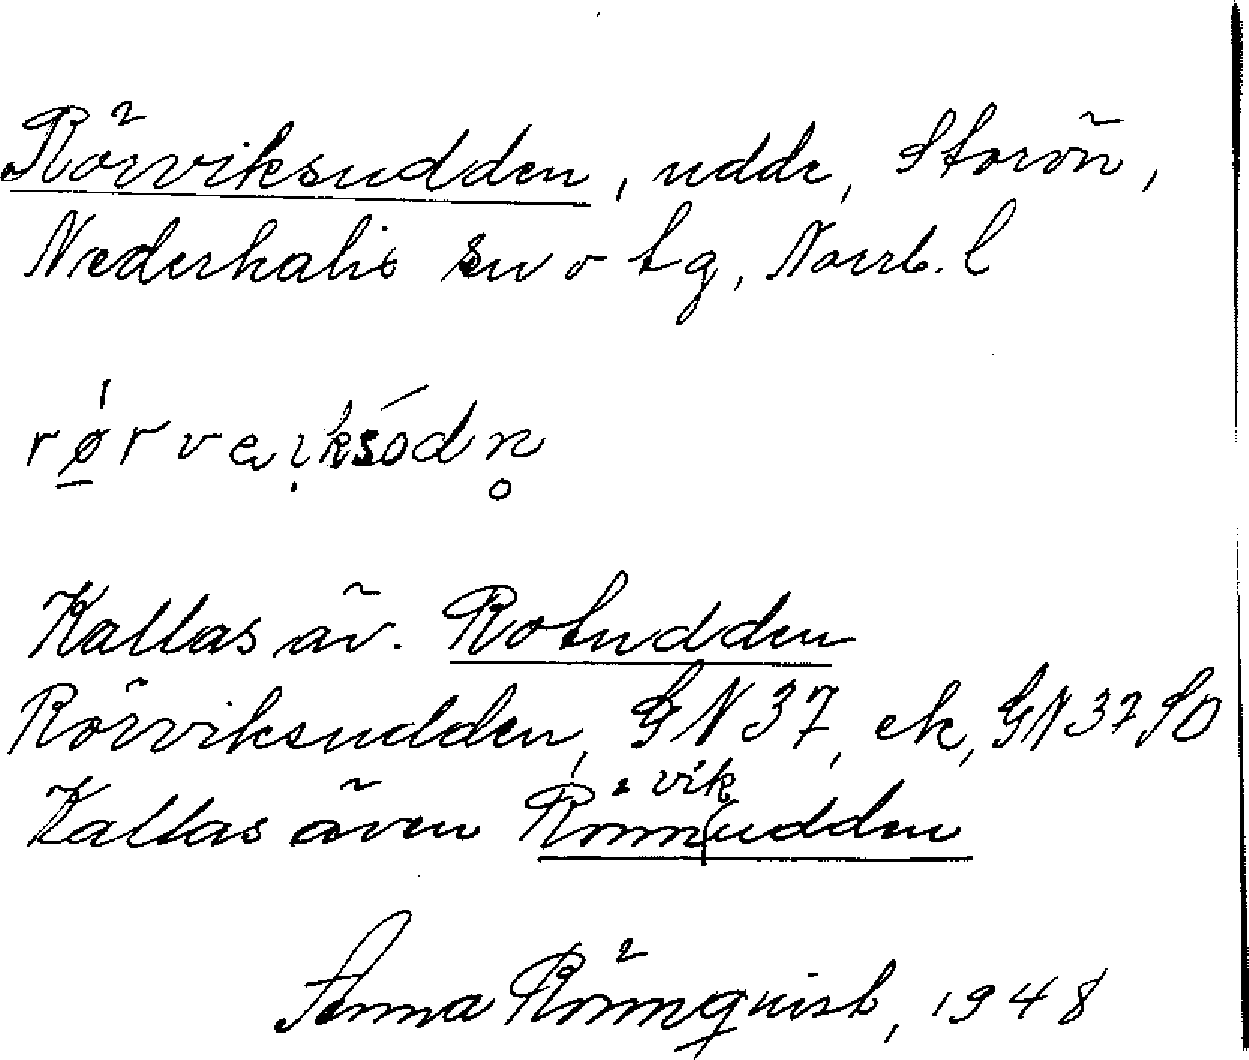 Rörviksudden, udde, Storön,
Nederkalix sn o tg, Norrb. l
Kallas äv. Rotudden
Rörviksudden, GN 37, ek, GN 37 SO
Kallas även Rönnvikudden
Anna Rönnquist, 1948